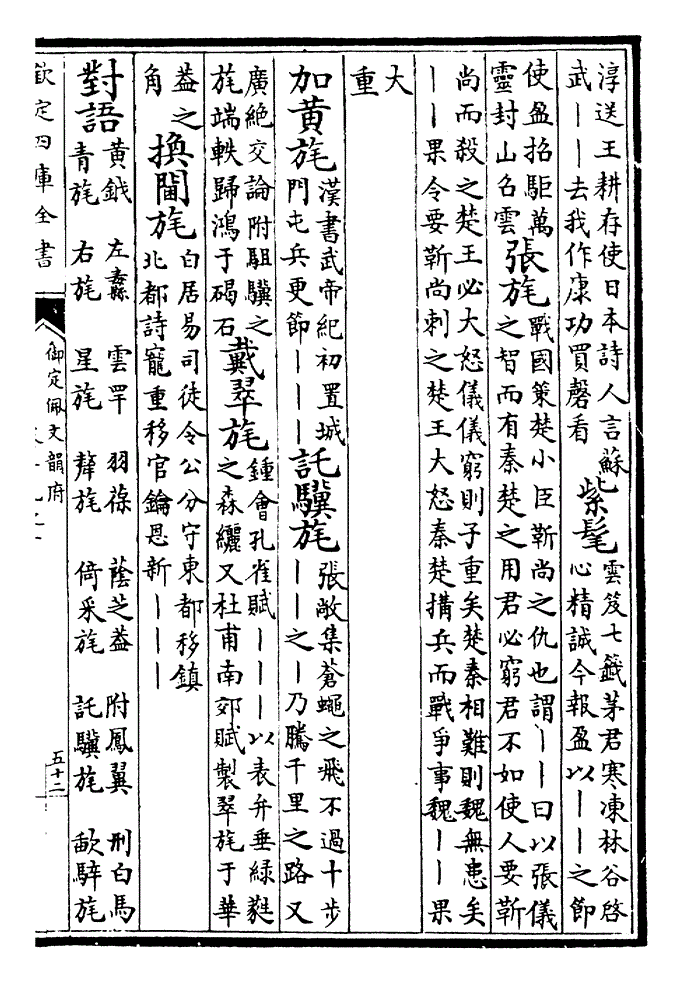 淳送王耕存使日本詩人言蘇
武｜｜去我作康功買磬看紫髦雲笈七籤茅君寒凍林谷啓
心精誠今報盈以｜｜之節
使盈招駏萬
靈封山名雲張旄戰國策楚小臣靳尚之仇也謂｜｜曰以張儀
之智而有秦楚之用君必窮君不如使人要靳
尚而殺之楚王必大怒儀儀窮則子重矣楚秦相難則魏無患矣
｜｜果令要靳尚刺之楚王大怒秦楚搆兵而戰爭事魏｜｜果
大
重
加黄旄漢書武帝紀初置城
門屯兵更節｜｜｜託驥旄張敞集蒼蠅之飛不過十步
｜｜之｜乃騰千里之路又
廣絶交論附駔驥之
旄端軼歸鴻于碣石戴翠旄鍾會孔雀賦｜｜｜以表弁垂緑蕤
之森纚又杜甫南郊賦製翠旄于華
葢之
角換閫旄白居易司徒令公分守東都移鎮
北都詩寵重移官鑰恩新｜｜｜
對語黄鉞 左纛 雲罕 羽葆 蔭芝葢 附鳳翼 刑白馬
青旄 右旄 星旄 犛旄 倚采旄 託驥旄 歃騂旄
欽定四庫全書
御定佩文韻府
五十二